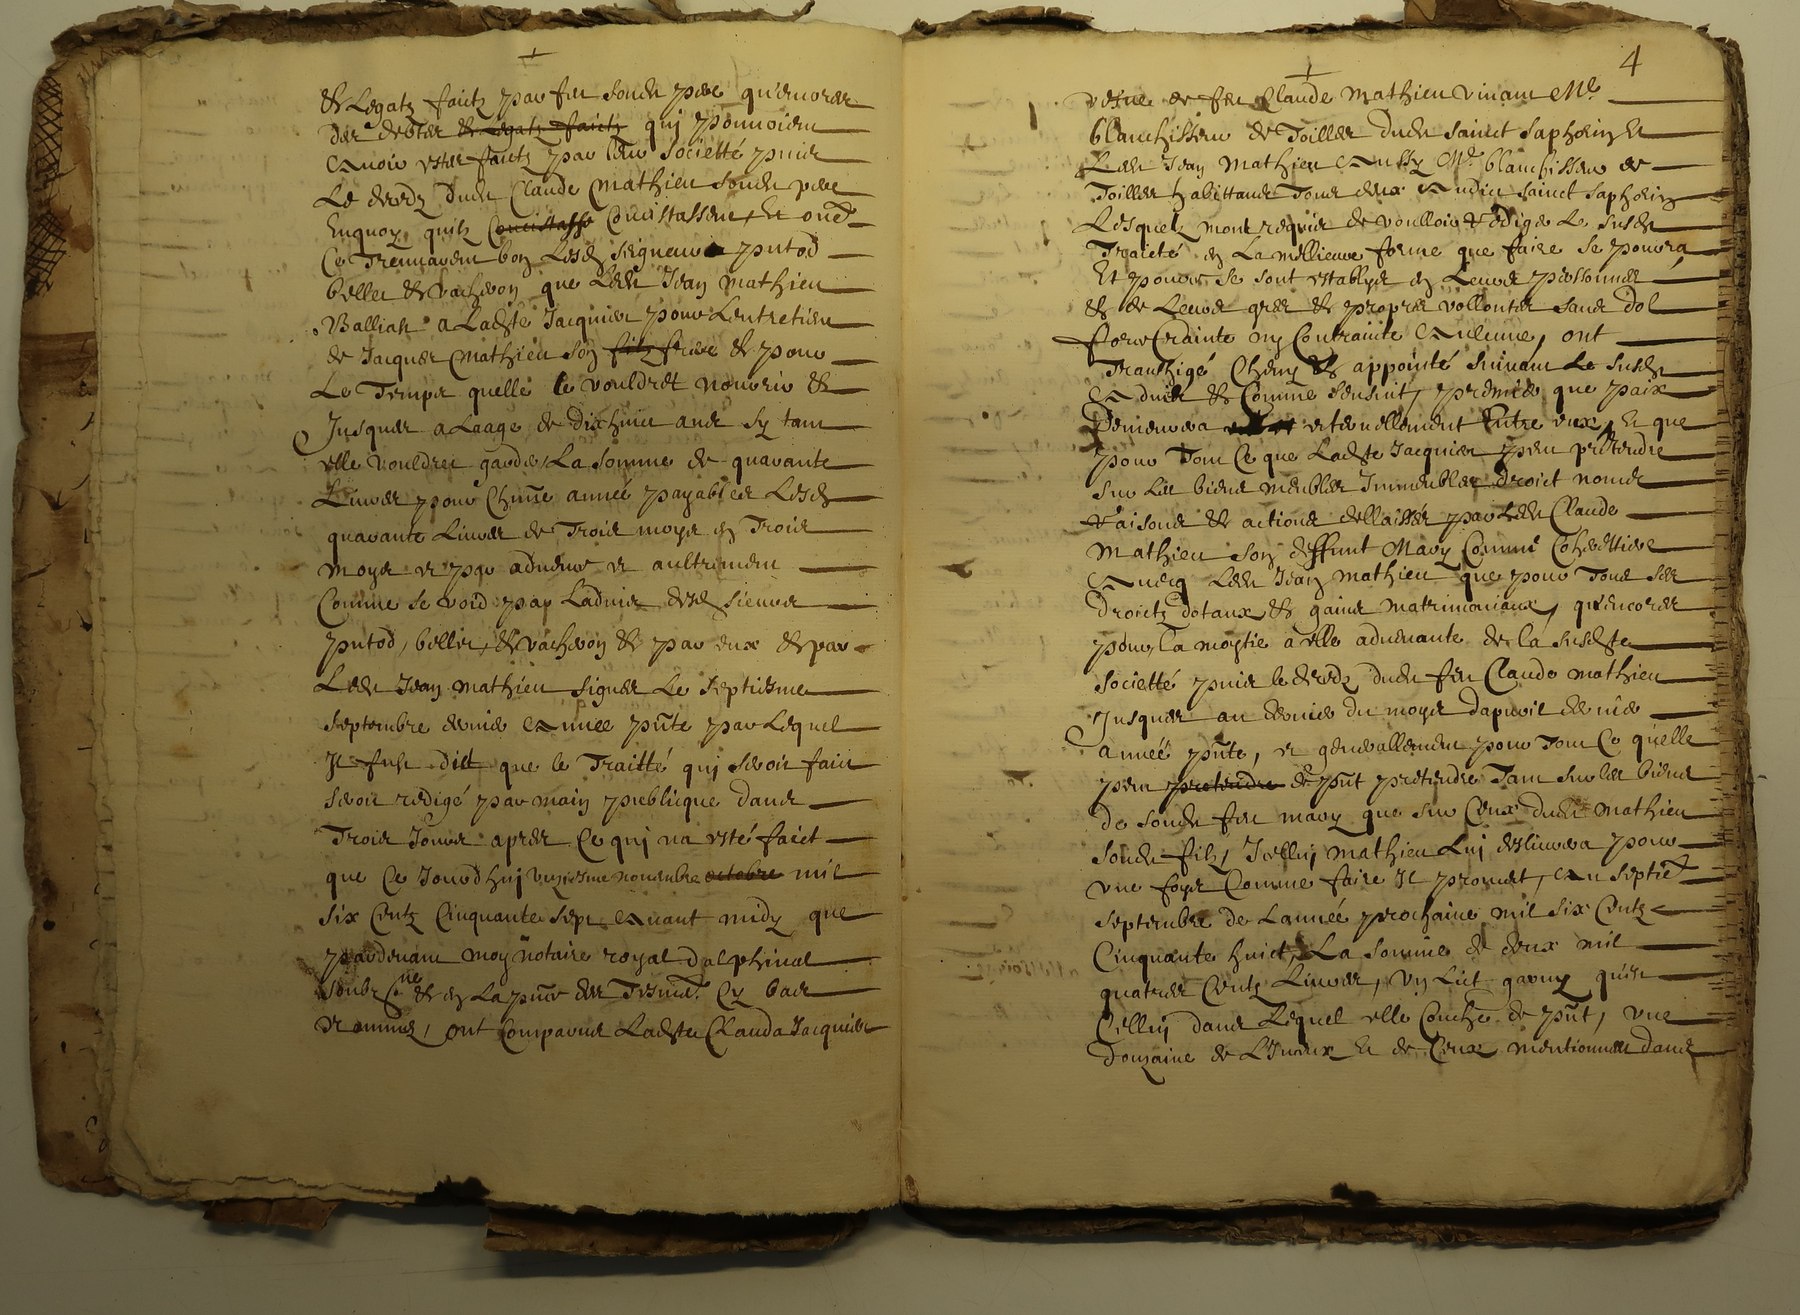 & Legatz faictz par feu sondt pere qu'encores
des debtes & Legatz faictz qui pouuoient
auoir estes faictz par leur societté puis
Le decedz dudt Claude Mathieu sondt pere
Enquoy quilz Concistasse Concistassent, Et ont
Ce Treuuarent bon Lesdt seigneurs putod
bellet & vacheron que Ledt Jean Mathieu
Balliast a Ladte Jacquier pour Lentretien
de Jacques Mathieu son filz frere & pour
Le Temps quelle le vouldret nourrir &
Jusques a Laage de dixhuict ans sy tant
elle vouldret garder La somme de quarante
Liures pour Chune année payables Lesdt
quarante Liures de Trois moys en Trois
moys et par aduence et aultrement
Comme se void par Ladvis desdt sieurs
putod, bellet, & vacheron & par eux & par
Ledt Jean Mathieu signés Le septiesme
septembre dernier année pnte par Lequel
Il fust dict que le Traitté qui seroit faict
seroit redigé par main publicque dans
Trois Jours apres Ce qui na esté faict
que Ce Jourdhuj vnziesme nouembre octobre mil
six Centz Cinquante sept auant midy que
pardeuant moy notaire royal dalphinal
soubzne & en La pnce des Tesmt Cy bas
nommes, ont Comparus Ladte Clauda Jacquier
4
vesue de feu Claude Mathieu viuant Me
blanchisseur de Toilles dudt sainct saphorin Et
Ledt Jean Mathieu aussy Me blanchisseur de
Toilles habittants Tous deux audict sainct saphorin
Lesquelz mont requis de voulloir redige Le susdt
Traicté en La mellieure forme que faire se pourra
Et pource se sont establys en Leurs personnes
& de Leurs grés & propres vollontes sans dol
force Crainte ny Contrainte aulcune, ont
Transigé Cheuy & appointé suiuant Le susdt
aduis & Comme sensuit, premier que paix
Demeurera eternellement Entre eux, Et que
pour Tout Ce que Ladte Jacquier peu prétendre
sur Les biens meubles Immeubles droict noms
raisons & actions dellaisses par Ledt Claude
Mathieu son deffunt Mary Comme Coheritiere
auecq Ledt Jean Mathieu que pour Tous ses
droictz dotaux & gains matrimoniaux, qu'encores
pour la moytie a elle aduenante de la susdte
societté puis le decedz dudt feu Claude Mathieu
Jusques au dernier du moys dapuril dernier
année pnte, et generallement pour Tout Ce quelle
peu pretendre de pnt pretendre Tant sur les biens
de sondt feu mary que sur Ceux dudt Mathieu
sondt filz, Icelluj Mathieu Luj desliurera pour
vne foys Comme faire Il promet, au septie
septembre de Lannée prochaine mil six Centz
Cinquante huict, La somme de deux mil
quattres Centz Liures, vn Lict garny quest
Celluj dans Lequel elle Couche de pnt, vne
douzaine de Linceux Et de Ceux mentionnes dans